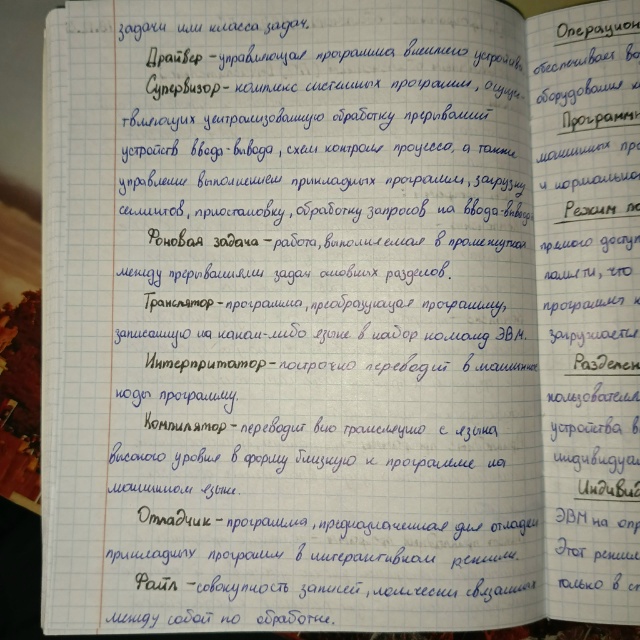 задачи или класса задач.
Драйвер - управляющая программа внешнего устройства
Супервизор - комплекс системных программ, осущес-
твляющих централизованную обработку прерываний
устройств ввода-вывода, схем контроля процессо, а также
управление выполнением прикладных программ, загрузку
сегментов, приостановку, обработку запросов на ввода-вывода
Фоновая задача - работа, выполняемая в промежутках
между прерываниями задач основных разделов.
Транслятор - программа, преобразующая программу,
записанную на каком-либо языке в набор команд ЭВМ.
Интерпритатор - построчно переводит в машинные
коды программу.
Компилятор - переводит всю трансляцию с языка
высокого уровня в форму близкую к программе на
машинном языке.
Отладчик - программа, предназначенная для отладки
прикладных программ в интерактивном режиме.
Файл - совокупность записей, логически связанных
между собой по обработке.
Операцион
обеспечивает во
оборудования
Программ
машинных про
и нормально
Режим
прямого досту
памяти, что
программы к
загружается
Разделен
пользовател
устройства в
индивидуал
Индивид
ЭВМ на опр
Этот режим
только в с